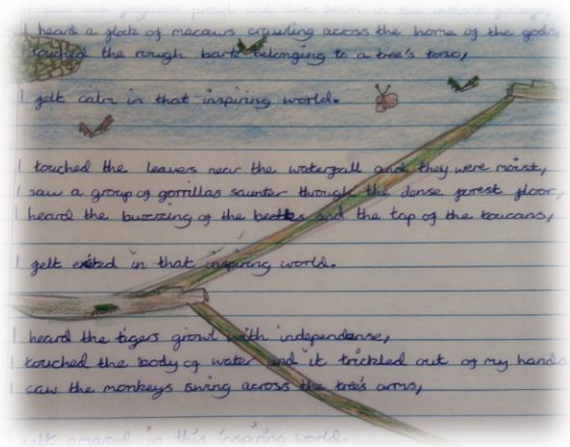 I heard a flock of macaws crawling across the home of the gods,
touched the rough bark belonging to a tree's torso,
I felt calm in that inspiring world.
I touched the leaves near the waterfall and they were moist,
I saw a group of gorrillas saunter through the dense forest floor,
I heard the buzzing of the beetles and the tap of the toucans,
I felt exited in that inspiring world.
I heard the tigers growl with independanse,
I touched the body of water and it trickled out of my hands
I saw the monkeys swing across the tree's arms,
felt amazed in this inspiring world.